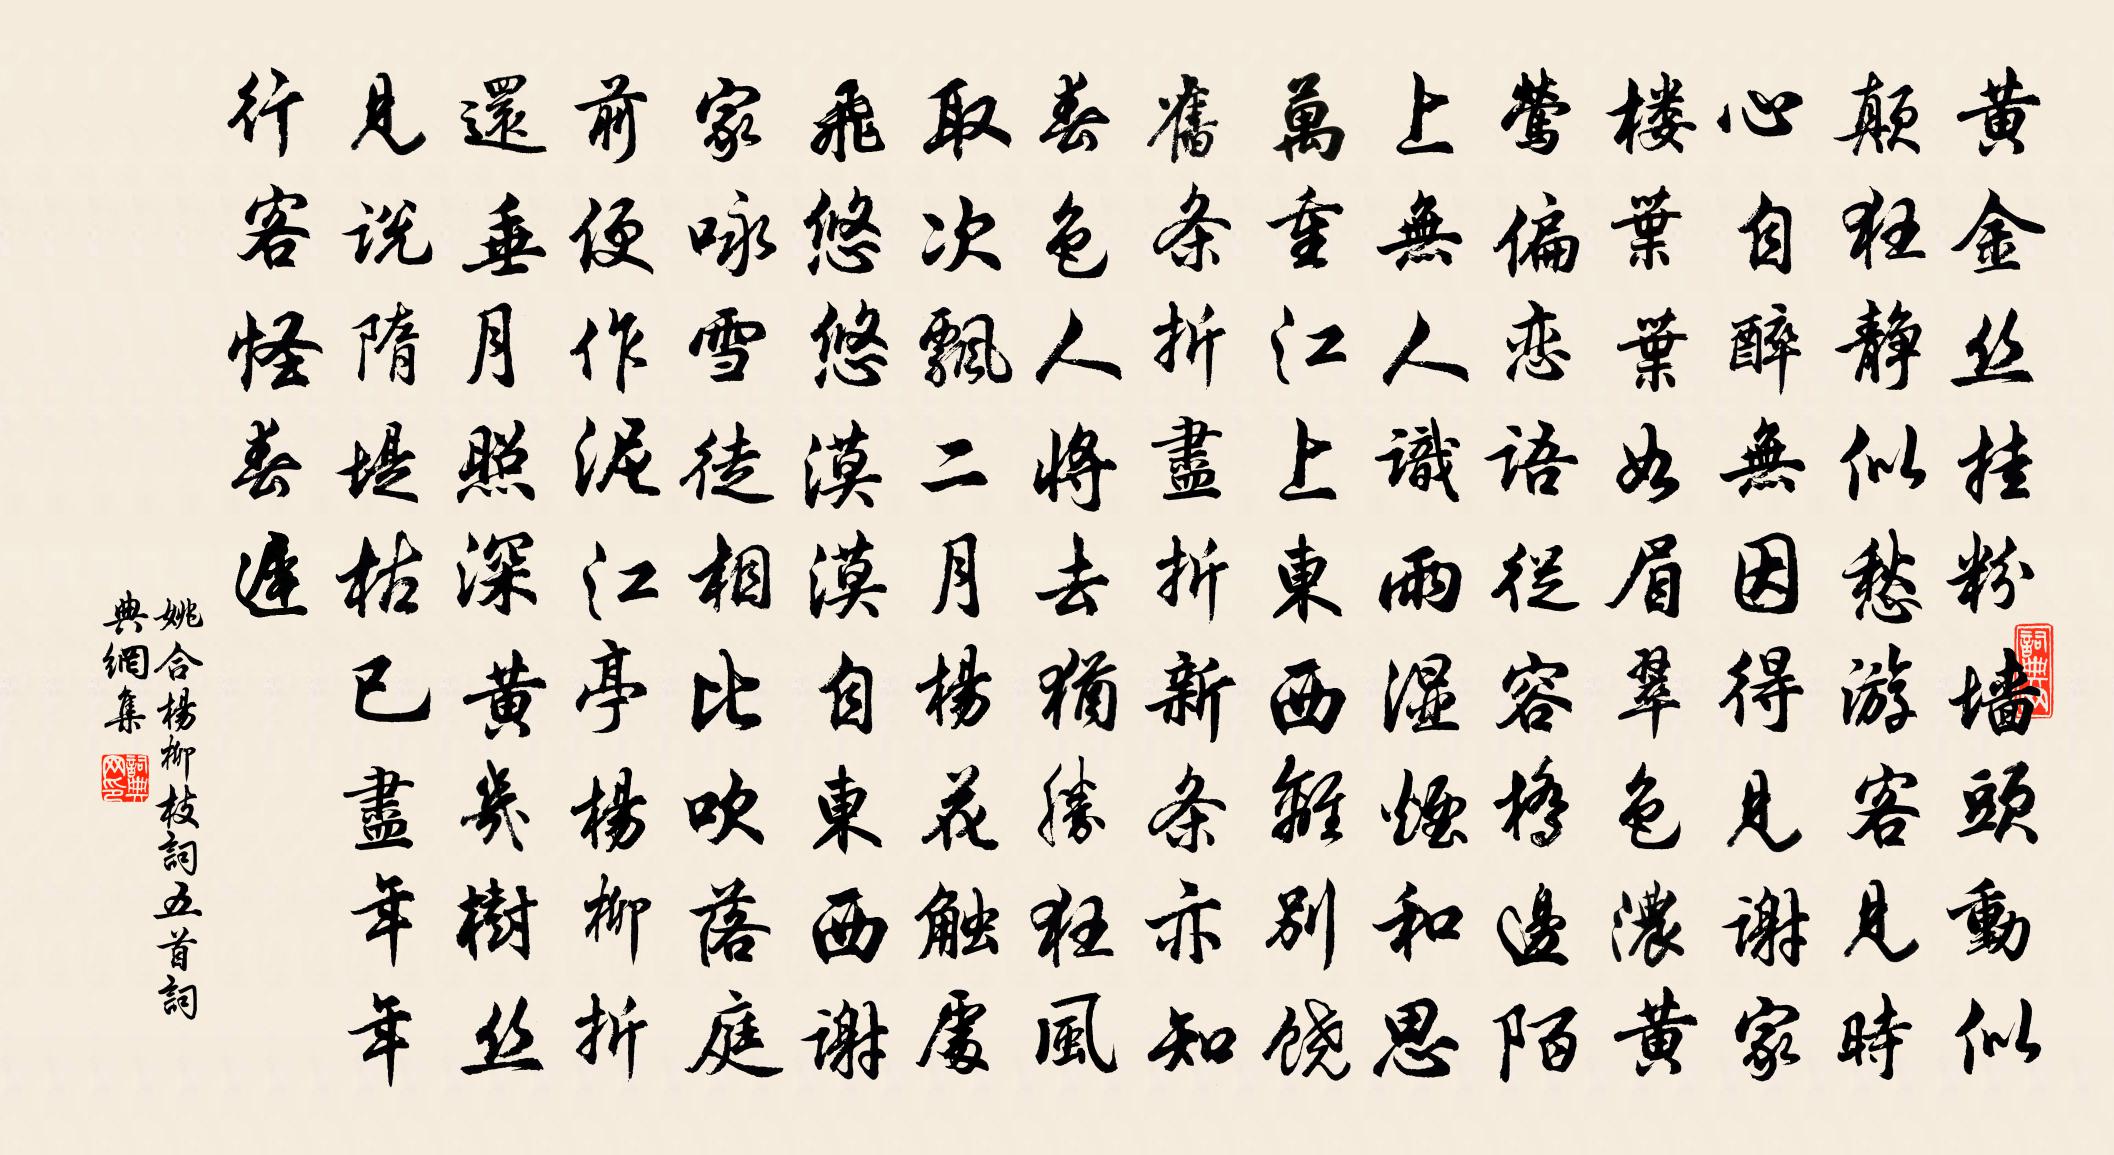 黃金丝挂粉墙頭動似
颠狂静似愁游客見時
心自醉無因得見谢家
楼葉葉如眉翠色濃黃
鶯偏恋語從容橋邊陌
上無人識雨湿煙和思
萬重江上東西離别饶
舊条折盡折新条亦知
春色人將去猶勝狂風
取次飄二月楊花触處
飛悠悠漠漠自東西谢
家咏雪徒相比吹落庭
前便作泥江亭楊柳折
還垂月照深黃幾樹丝
見说隋堤枯已盡年年
行客怪春遲
姚合楊柳枝詞五首詞
典網集
詞典网
詞典网印